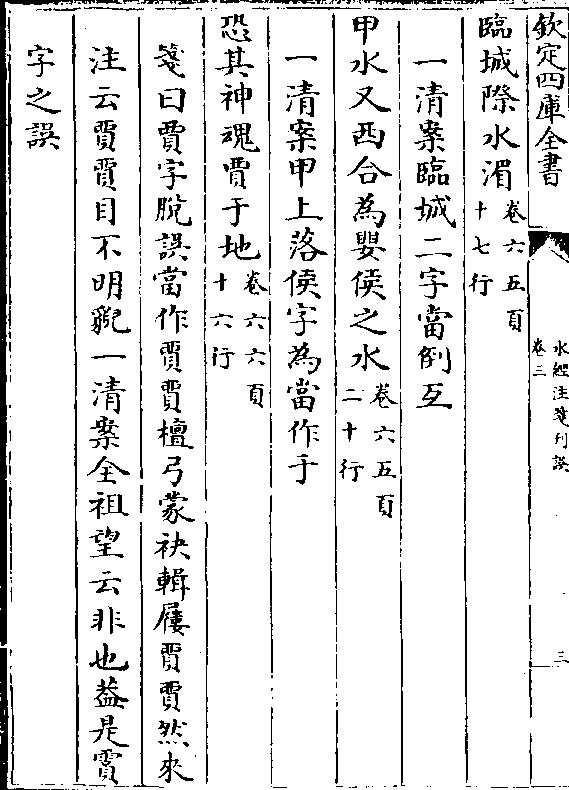 欽定四庫全書
水經注箋刊誤
卷三
三
臨城際水湄卷六五頁十七行
一清案臨城二字當倒互
甲水又西合為嬰侯之水卷六五頁二十行
一清案甲上落侯字為當作于
恐其神魂賈于地卷六六頁十六行
箋曰賈字脫誤當作賈賈檀弓蒙袂輯屨賈賈然來
注云賈賈目不明貌一清案全祖望云非也葢是霣
字之誤